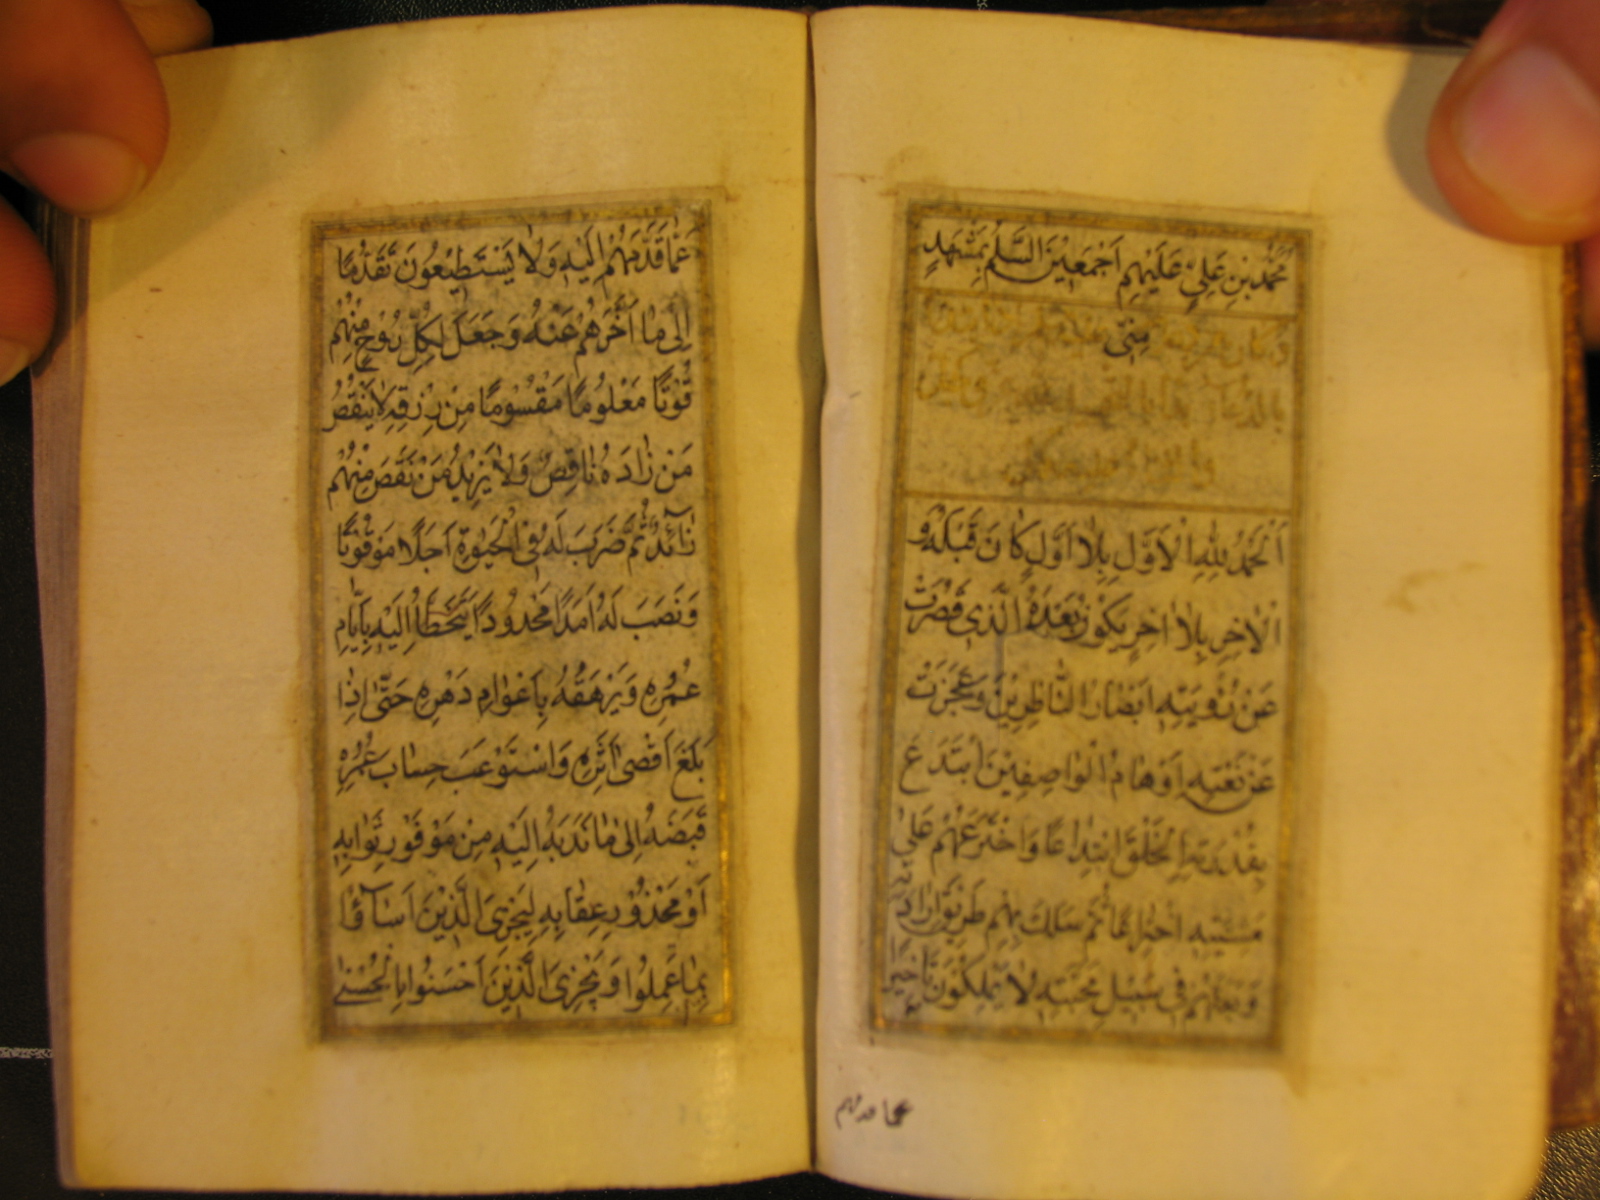 مُحَمَّدِ بْنِ عَلِيٍّ عَلَيْهِمْ اَجْمَعِينَ السَّلٰمُ بِمَشْهَدٍ
مِنّٖى
اَلْحَمْدُ لِلّٰهِ الْاَوَّلِ بِلٰا اَوَّلٍ كٰانَ قَبْلَهُ وَ
الْاٰخِرِ بِلٰا اٰخِرٍ يَكُونُ بَعْدَهُ الَّذٖى قَصُرَتْ
عَنْ رُؤْيَتِهِ اَبْصٰارُ النّٰاظِرٖينَ وَعَجَزَتْ
عَنْ نَعْتِهِ اَوْهٰامُ الْوٰاصِفٖينَ ابْتَدَعَ
بِقُدْرَتِهِ الْخَلْقَ ابْتِدٰاعًا وَاخْتَرَعَهُمْ عَلىٰ
مَشِيَّتِهِ اخْتِرٰاعًا ثُمَّ سَلَكَ بِهِمْ طَرٖيقَ اِرٰادَتِهِ
وَبَعَثَهُمْ فٖى سَبٖيلِ مَحَبَّتِهِ لٰا يَمْلِكُونَ تَاْخٖيرًا
عما قدمهم
عَمّٰا قَدَّمَهُمْ اِلَيْهِ وَلٰا يَسْتَطٖيعُونَ تَقَدُّمًا
اِلىٰ مٰا اَخَّرَهُمْ عَنْهُ وَجَعَلَ لِكُلِّ رُوحٍ مِنْهُمْ
قُوتًا مَعْلُومًا مَقْسُومًا مِنْ رِزْقِهِ لٰا يَنْقُصُ
مَنْ زٰادَهُ نٰاقِصٌ وَلٰا يَزٖيدُ مَنْ نَقَصَ مِنْهُمْ
زٰائِدٌ ثُمَّ ضَرَبَ لَهُ فِى الْحَيٰوةِ اَجَلًا مَوْقُوتًا
وَنَصَبَ لَهُ اَمَدًا مَحْدُودًا يَتَخَطَّاُ اِلَيْهِ بِاَيّٰامِ
عُمُرِهِ وَيَرْهَقُهُ بِاَعْوٰامِ دَهْرِهِ حَتّٰى اِذٰا
بَلَغَ اَقْصىٰ اَثَرِهِ وَاسْتَوْعَبَ حِسٰابَ عُمُرِهِ
قَبَضَهُ اِلىٰ مٰا نَدَبَهُ اِلَيْهِ مِنْ مَوْفُورِ ثَوٰابِهِ
اَوْ مَحْذُورِ عِقٰابِهِ لِيَجْزِىَ الَّذٖينَ اَسٰاؤُا
بِمٰا عَمِلُوا وَيَجْزِىَ الَّذٖينَ اَحْسَنُوا بِالْحُسْنىٰ